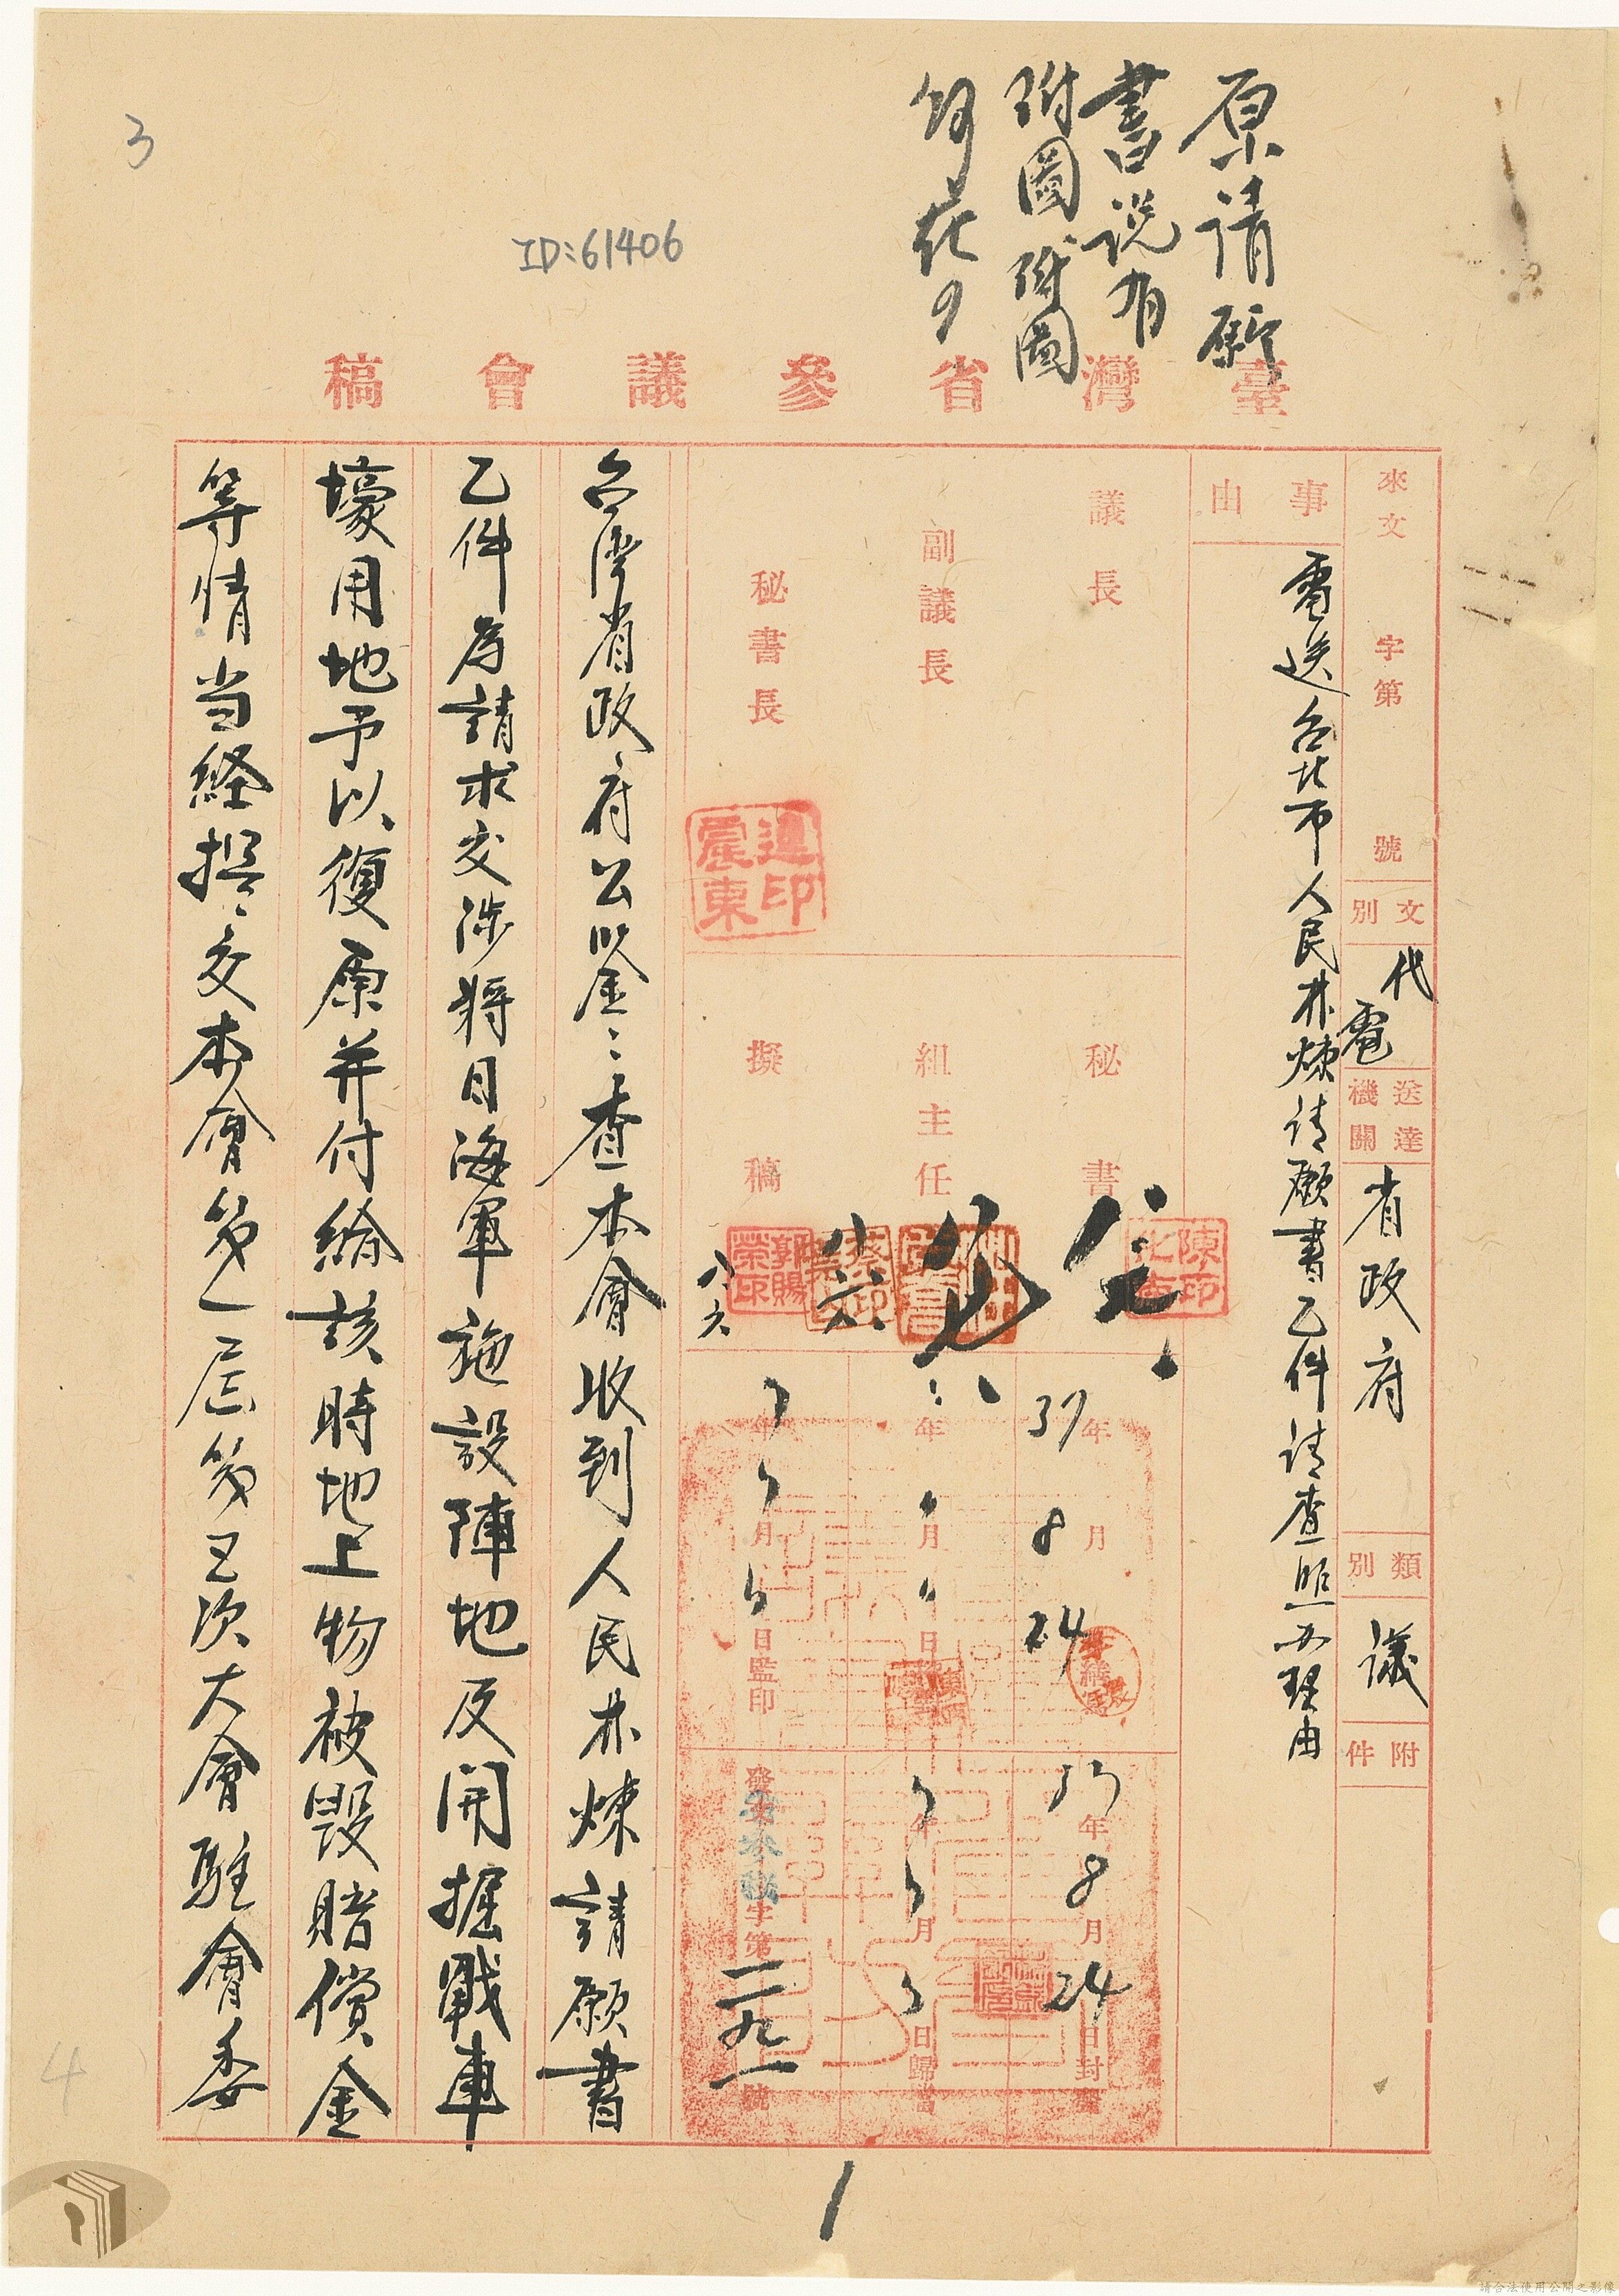 3
ID:61406
原請願
書說有
附圖附圖
何在?
臺灣省參議會稿
來文 字第 號
文別 代電
送達機關 省政府
類別 議
附件
事由
電送台北市人民林煉請願書乙件請查照办理由
議長
副議長
秘書長
連震東印
秘書
組主任
擬稿
陳印
郭賜榮印
八六
37年8月24日
年月日
年月日監印
37年8月24日封發
年月日歸檔
發文 參 字第一二九一號
台灣省政府公鑒:查本會收到人民林煉請願書
乙件為請求交涉將日海軍施設陣地及開掘戰車
壕用地予以復原并付給該時地上物被毀賠償金
等情当経提交本會第一屆第五次大會駐會委
1
4
請合法使用公開之影像